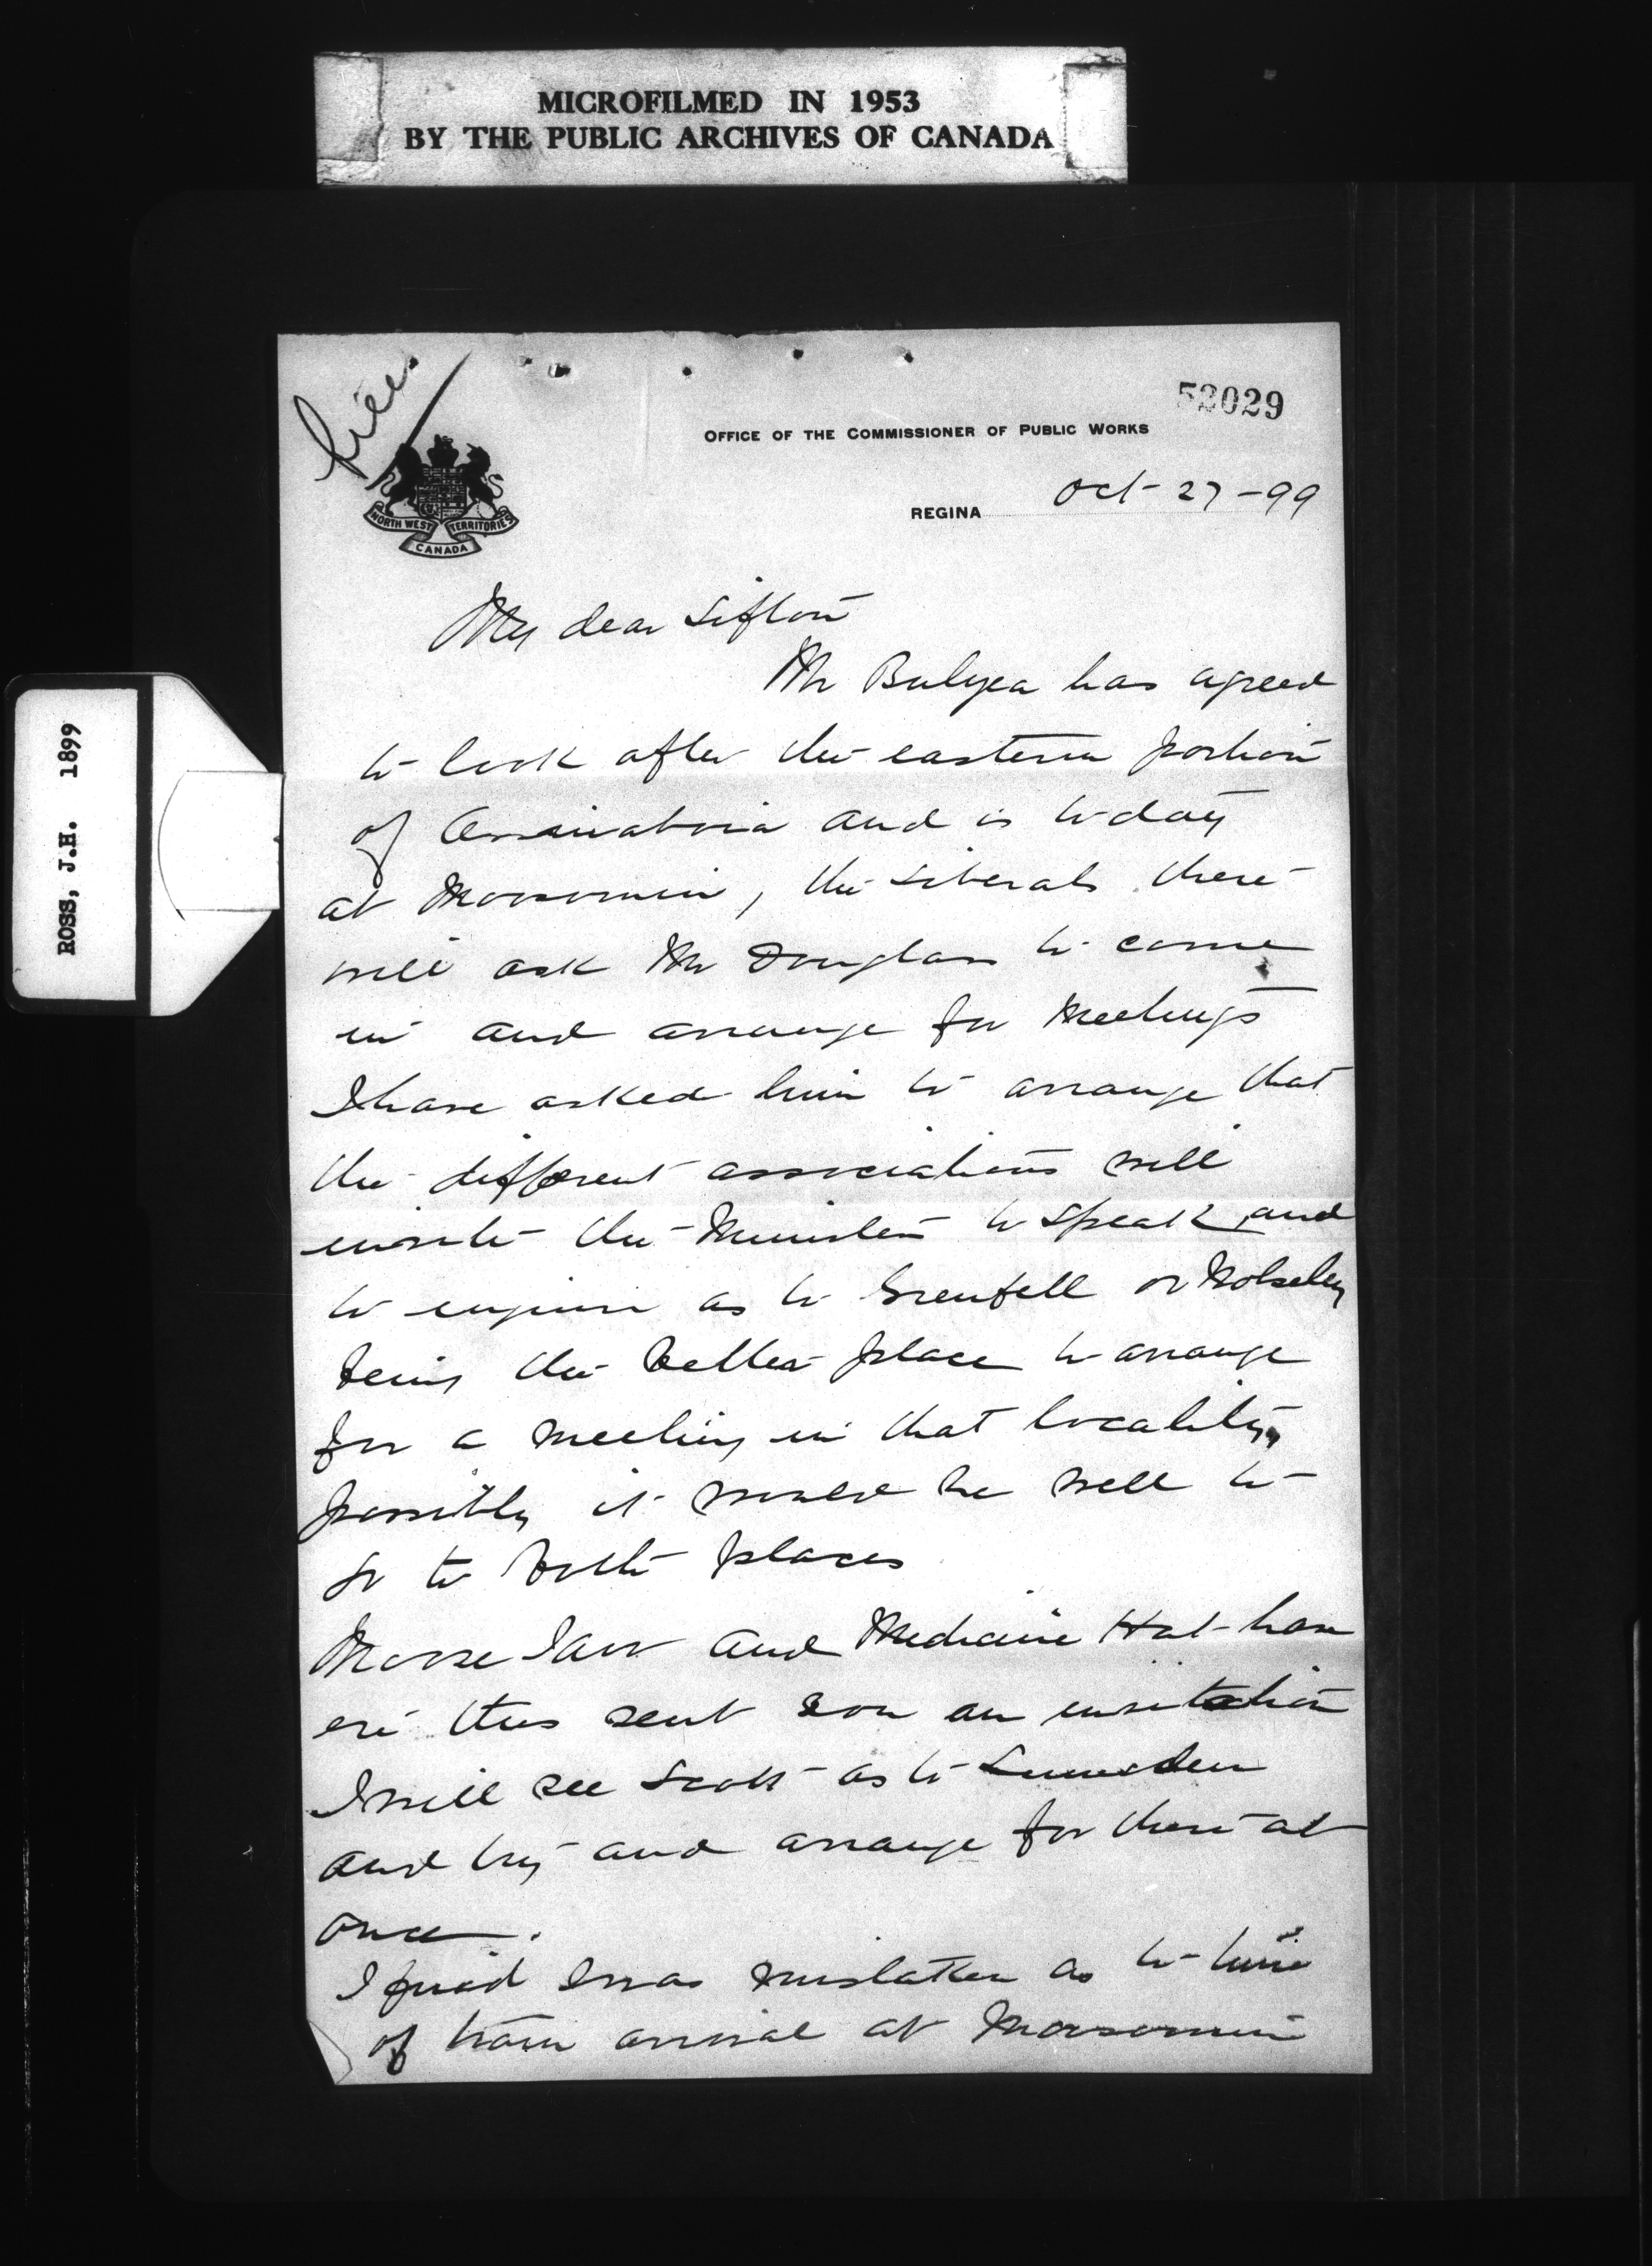 MICROFILMED IN 1953
BY THE PUBLIC ARCHIVES OF CANADA
ROSS, J.H. 1899
file
52029
OFFICE OF THE COMMISSIONER OF PUBLIC WORKS
NORTH WEST TERRITORIES
CANADA
REGINA Oct 27-99
My dear Sifton
Mr Bulyea has agreed
to look after the eastern portion
of Assiniboia and is today
at Moosomin, the Liberals there
will ask Mr Douglas to come
in and arrange for Meetings
I have asked him to arrange that
the different associations will
invite the Minister to speak and
to enquire as to Grenfell or Wolseley
being the better place to arrange
for a meeting in that locality,
possibly it would be well to
go to both places
Moose Jaw and Medicine Hat have
ere this sent you an invitation
I will see Scott as to Lumsden
and try and arrange for there at
once.
I find I was mistaken as to time
of train arrival at Moosomin